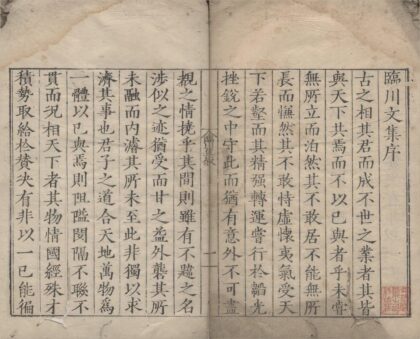 臨川文集序
古之相其君而成不世之業者其皆
與天下共焉而不以己與者乎未嘗
無所立而泊然其不敢居不能無所
長而憮然其不敢恃虛懷夷氣受天
下若壑而其精强轉運嘗行於韜光
挫銳之中守此而猶有意外不可盡
親之情撓乎其間則雖有不韙之名
涉似之迹猶受而甘之益外礱其所
未融而內濬其所未至此非獨以求
濟其事也君子之道合天地萬物爲
一體以己與焉則阻隘閡隔不聯不
貫而況相天下者其物情國經殊才
積勢取給於贊決有非以一己能徧